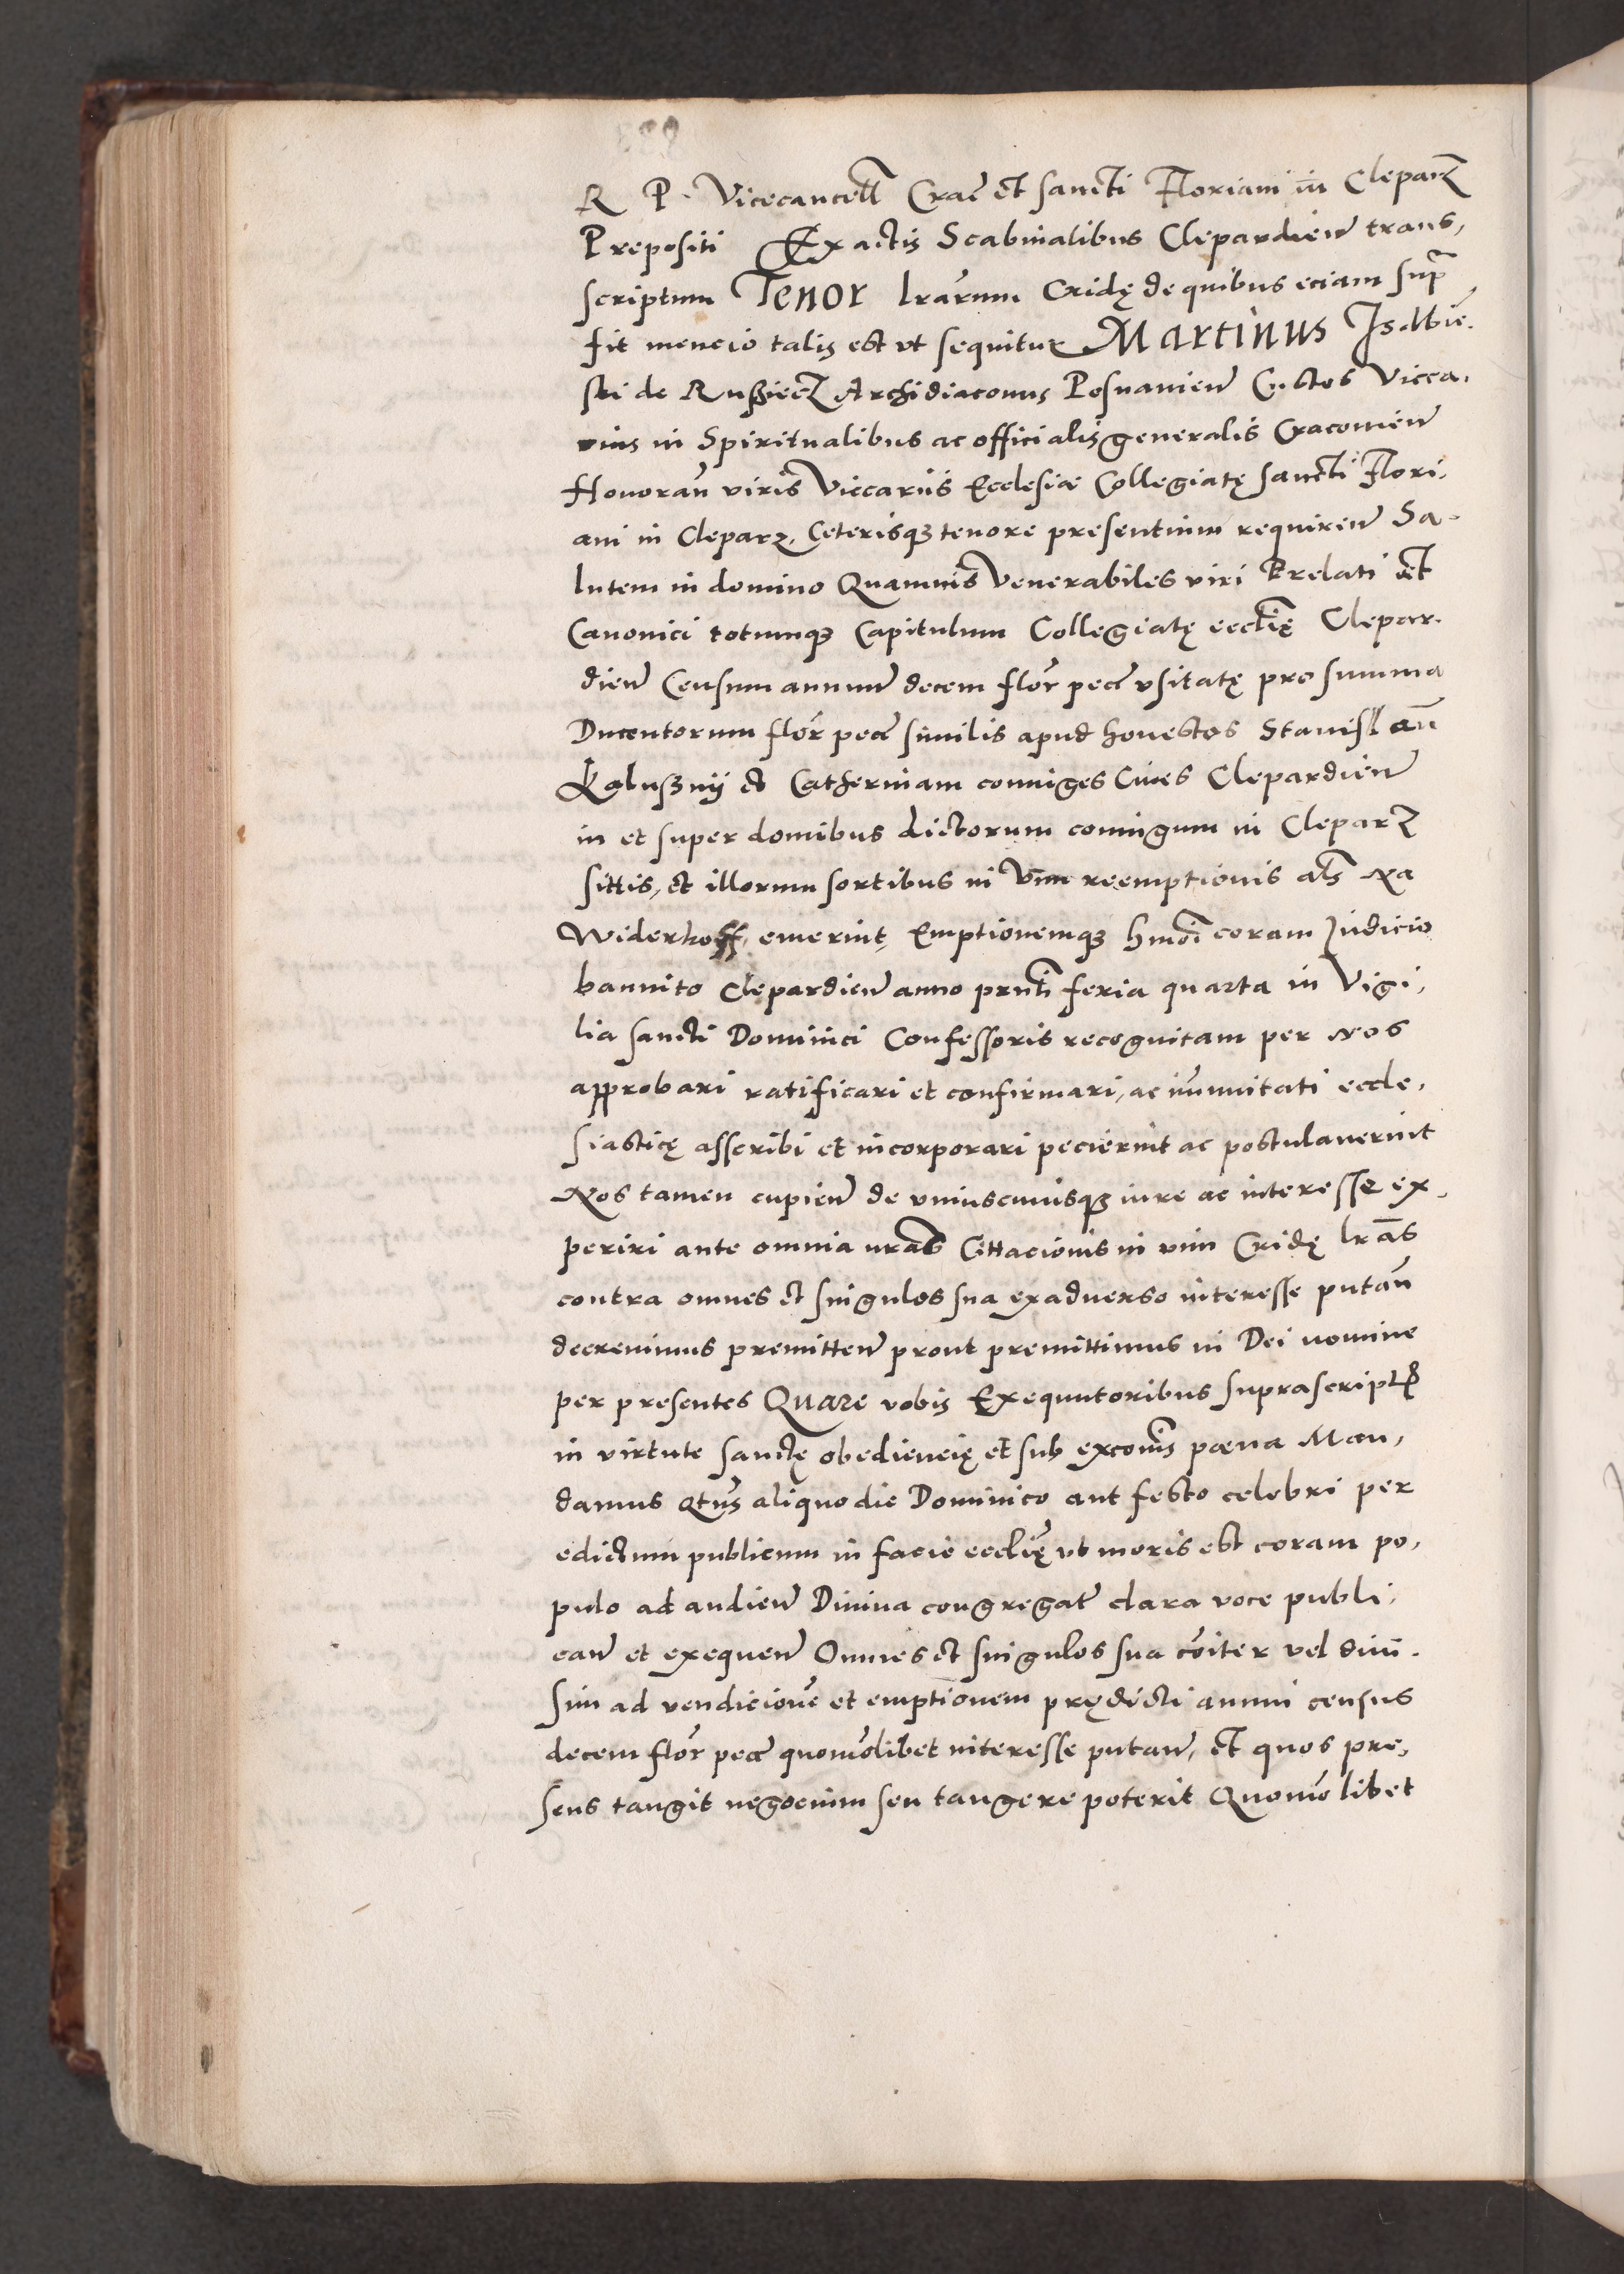 R P. Vicecancell Crac̄ et sancti Floriani in Cleparz
Prepositi Ex actis Scabinalibus Clepardien̄ trans,
scriptum Tenor lrārum Cridę de quibus eciam supra
fit mencio talis est vt sequitur Martinus Isdbień.
ski de Rusßiecz Archidiaconus Posnanien̄ Custos Vicca,
rius in Spiritualibus ac officialis generalis Cracouien̄
Honoran̄ viris Viccariis Ecclesiæ Collegiatę sancti Flori,
ani in Cleparz, Ceterisqꝫ tenore presentium requiren̄ Sa-
lutem in domino Quamuis Venerabiles viri Prelati et
Canonici totumqꝫ Capitulum Collegiatę ecclię Clepar-
dien̄ Censum annuum decem flor̄ pec̄ vsitatę pro summa
Ducentorum flor̄ pec̄ similis apud honestos Stanisl aūm
Kalusßnij et Catherinam coniuges Ciues Clepardien̄
in et super domibus dictorum coniugum in Cleparz
sittis, et illorum sortibus in vim reemptionis als na
Widerkoff, emerint, Emptionemqꝫ hmōi coram Iudicio
bannito Clepardien̄ anno prnti feria quarta in Vigi,
lia sancti Dominici Confessoris recognitam per Nos
approbari ratificari et confirmari, ac immunitati eccle,
siasticę asscribi et incorporari pecierint ac postulauerint
Nos tamen cupien̄ de vniuscuiusqꝫ iure ac interesse ex,
periri ante omnia nrās Cittacionis in vim Cridę lrās
contra omnes et singulos sua exaduerso interesse putan̄
decreuimus premitten̄ prout premittimus in Dei nomine
per presentes Quare vobis Exequutoribus suprascriptis
in virtute sanctę obediencię et sub excōnis pœna Man,
damus Qtūs aliquo die Dominico aut festo celebri per
edictum publicum in facie ecclię vt moris est coram po,
pulo ad audien̄ Diuina congregat̄ clara voce publi,
can̄ et exequen̄ Omnes et singulos sua cōiter vel diui-
sim ad vendicionē et emptionem prędicti annui census
decem flor̄ pec̄ quomōlibet interesse putan̄, et quos pre,
sens tangit negocium seu tangere poterit Quomō libet